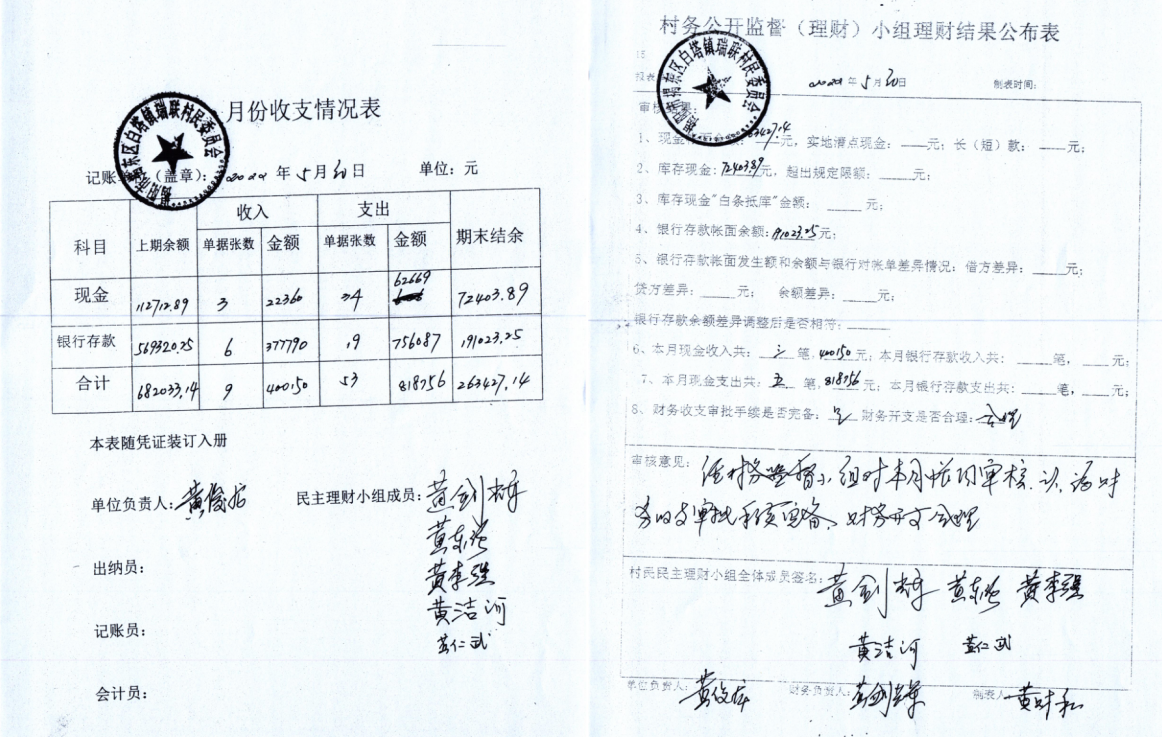 月份收支情况表
揭阳市揭东区白塔镇瑞联村民委员会
记账 （盖章）：2022年5月30日 单位：元
科目 上期余额 收入 支出 期末结余
单据张数 金额 单据张数 金额
现金 112712.89 3 22360 34 62669 72403.89
银行存款 569320.25 6 377790 19 756087 191023.25
合计 682033.14 9 400150 53 818756 263427.14
本表随凭证装订入册
单位负责人：黄俊
民主理财小组成员：黄剑
黄东
黄李强
黄洁河
黄仁武
出纳员：
记账员：
会计员：
村务公开监督（理财）小组理财结果公布表
揭阳市揭东区白塔镇瑞联村民委员会
报表 2022年5月30日 制表时间：
审核
1、现金 面余额：263427.14元，实地清点现金：元；长（短）款：元；
2、库存现金：72403.89元，超出规定限额：元；
3、库存现金"白条抵库"金额：元；
4、银行存款帐面余额：191023.25元；
5、银行存款帐面发生额和余额与银行对帐单差异情况：借方差异：元；
贷方差异：元； 余额差异：元；
银行存款余额差异调整后是否相符：
6、本月现金收入共：笔，400150元；本月银行存款收入共：笔，元；
7、本月现金支出共：笔，818756元；本月银行存款支出共：笔，元；
8、财务收支审批手续是否完备：是 财务开支是否合理：合理
审核意见：经村务监督小组对本月帐的审核，认为财
务收支审批手续完备，财务开支合理
村民民主理财小组全体成员签名：黄剑 黄东 黄李强
黄洁河 黄仁武
单位负责人：黄俊 财务负责人：黄剑 制表人：黄财和